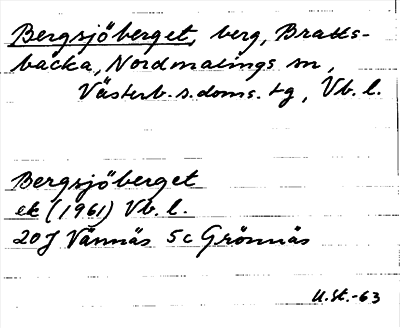 Bergsjöberget, berg, Bratts-
backa, Nordmalings sn,
Västerb. s. doms. tg, Vb. l.
Bergsjöberget
ek (1961) Vb. l.
20J Vännäs 5c Grönnäs
U.St.-63